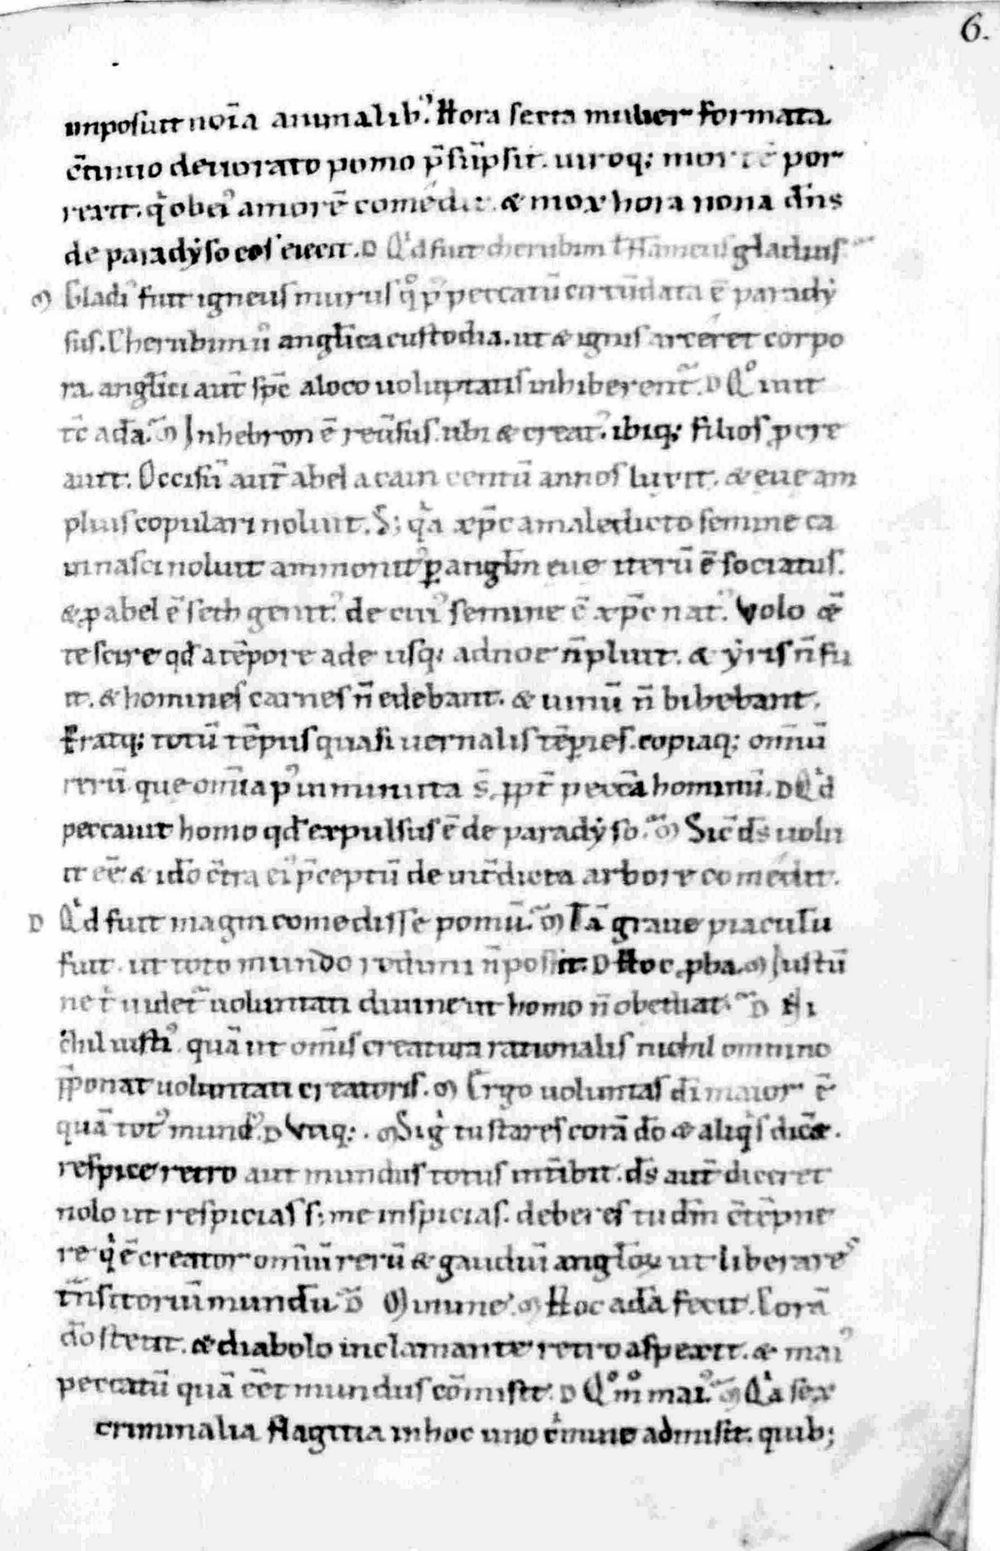 6.
imposuit noīa animalib'. Hora sexta mulier formata
c̄tinuo deuorato pomo p̄sūpsit. uiroq; mortē por
rexit. q̇ ob ei' amorē comedit. & mox hora nona dn̄s
de paradẏso eos eiecit. D Qi̇d fuit cherubim ł flāmeus gladius
M Gladi' fuit igneus murus qͦ p' peccatū circūdata ē paradẏ
sus. Cherubim ů anglica custodia. ut & ignis arceret corpo
ra. anglici aut̄ sp̄c a loco uoluptatis inhiberent'. D Qͦ iuit
tc̄ adā. M In hebron ē reūsus. ubi & creat'. ibiq; filios pcre
auit. Occisū aut̄ abel a cain centū annos luxit. & eue am
plius copulari noluit. S; qa xp̄c a maledicto semine ca
in nasci noluit ammonit' p anglm eue iterū ē sociatus.
& p abel ē seth genit'. de cui' semine ē xp̄c nat'. Volo &̄
te scire qd̄ a tēpore ade usq; ad noe n̄ pluit. & ẏris n̄ fu
it. & homines carnes n̄ edebant. & uinū n̄ bibebant.
Eratq; totū tēpus quasi uernalis tēpies. copiaq; om̄iū
rerū que om̄ia p' inmutata s̄. ppt̄ peccā hominū. D Qi̇d
peccauit homo qd̄ expulsus ē de paradẏso. M Sic ds̄ uolu
it eē & idō c̄tra ei' p̄ceptū de int̄dicta arbore comedit.
D Qi̇d fuit magni comedisse pomū. M Tā graue piaculū
fuit. ut toto mundo redimi n̄ possit. D Hoc pba. M Iustū
ne t̄ uidet' uoluntati diuine ut homo n̄ obediat. D Ni
chil iusti'. quā ut om̄is creatura rationalis nichil omnino
p̄ponat uoluntati creatoris. M Ergo uoluntas dī maior ē
quā tot' mund'. D Vtiq;. M Sig̊ tu stares corā dō & aliqi̇s dic̄&.
respice retro aut mundus totus int̄ibit. ds̄ aut̄ diceret
nolo ut respicias s; me inspicias. deberes tu dm̄ c̄tēpne
re qi̇ ē creator om̄iū rerū & gaudiū angloꝝ ut liberares
tn̄sitoriū mundū D Minime. M Hoc adā fecit. Corā
dō stetit. & diabolo inclamante retro aspexit. & mai'
peccatū quā eēt mundus cōmisit. D Qͦm̊ mai'. M Qa sex
criminalia flagitia in hoc uno c̊mine admisit. quib;